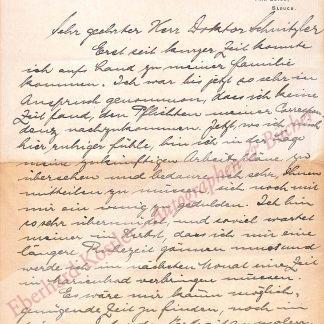 GLOUCS.
Sehr geehrter Herr Doktor Schnitzler
Erst seit kurzer Zeit konnte
ich auf Land zu meiner Familie
kommen. Ich war bis jetzt so sehr in
Anspruch genommen, dass ich keine
Zeit fand, den Pflichten meiner Correspon
denz nachzukommen. Jetzt, wo ich mich
hier ruhiger fühle, bin ich in der Lage
meine zukünftigen Arbeitspläne zu
übersehen und bedaure ich sehr, Ihnen
mitteilen zu müssen, sich noch mit
mir ein wenig zu gedulden. Ich bin
so sehr übermüdet und soviel wartet
meiner im Herbst, dass ich mir eine
längere Ruhezeit gönnen muss und
werde ich im nächsten Monat eine Zeit
in Marienbad verbringen müssen.
Es wäre mir kaum möglich,
genügende Zeit zu finden, noch in
Eberhard Köstler Autographen & Bücher